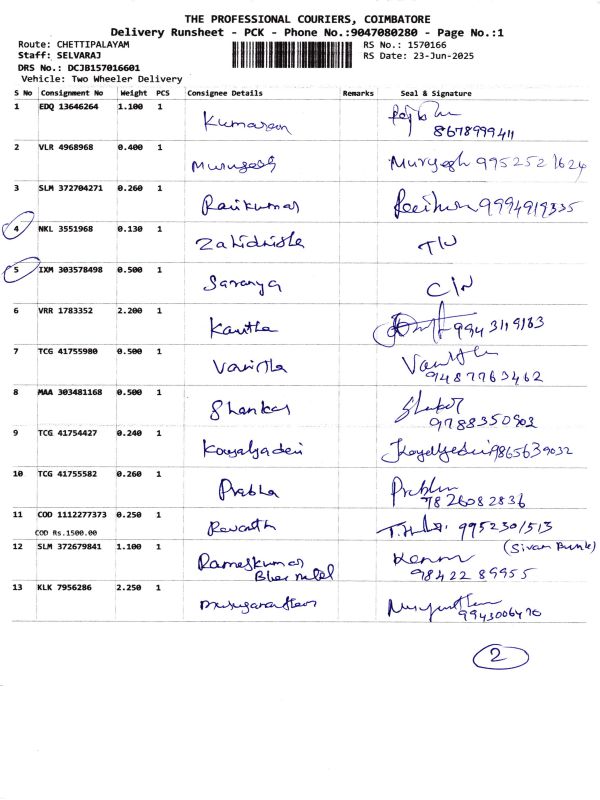 THE PROFESSIONAL COURIERS, COIMBATORE
Delivery Runsheet - PCK - Phone No.:9047080280 - Page No.:1
Route: CHETTIPALAYAM RS No.: 1570166
Staff: SELVARAJ RS Date: 23-Jun-2025
DRS No.: DCJB157016601
Vehicle: Two Wheeler Delivery
S No Consignment No Weight PCS Consignee Details Remarks Seal & Signature
1 EDQ 13646264 1.100 1 Kumaran
8678999411
2 VLR 4968968 0.400 1 Murugesh Murugesh 9952521624
3 SLM 372704271 0.260 1 Ravikumar 9994919335
4 NKL 3551968 0.130 1
5 IXM 303578498 0.500 1 Saranya C/N
6 VRR 1783352 2.200 1 Kavitha 9943119183
7 TCG 41755980 0.500 1 Vanitha
9487763462
8 MAA 303481168 0.500 1 Shankar
9788350903
9 TCG 41754427 0.240 1 9865639032
10 TCG 41755582 0.260 1 Prabha
9826082836
11 COD 1112277373 0.250 1 Revathi 9952301513
COD Rs.1500.00
12 SLM 372679841 1.100 1 Rameskumar
9842289955
13 KLK 7956286 2.250 1
9943006476
2